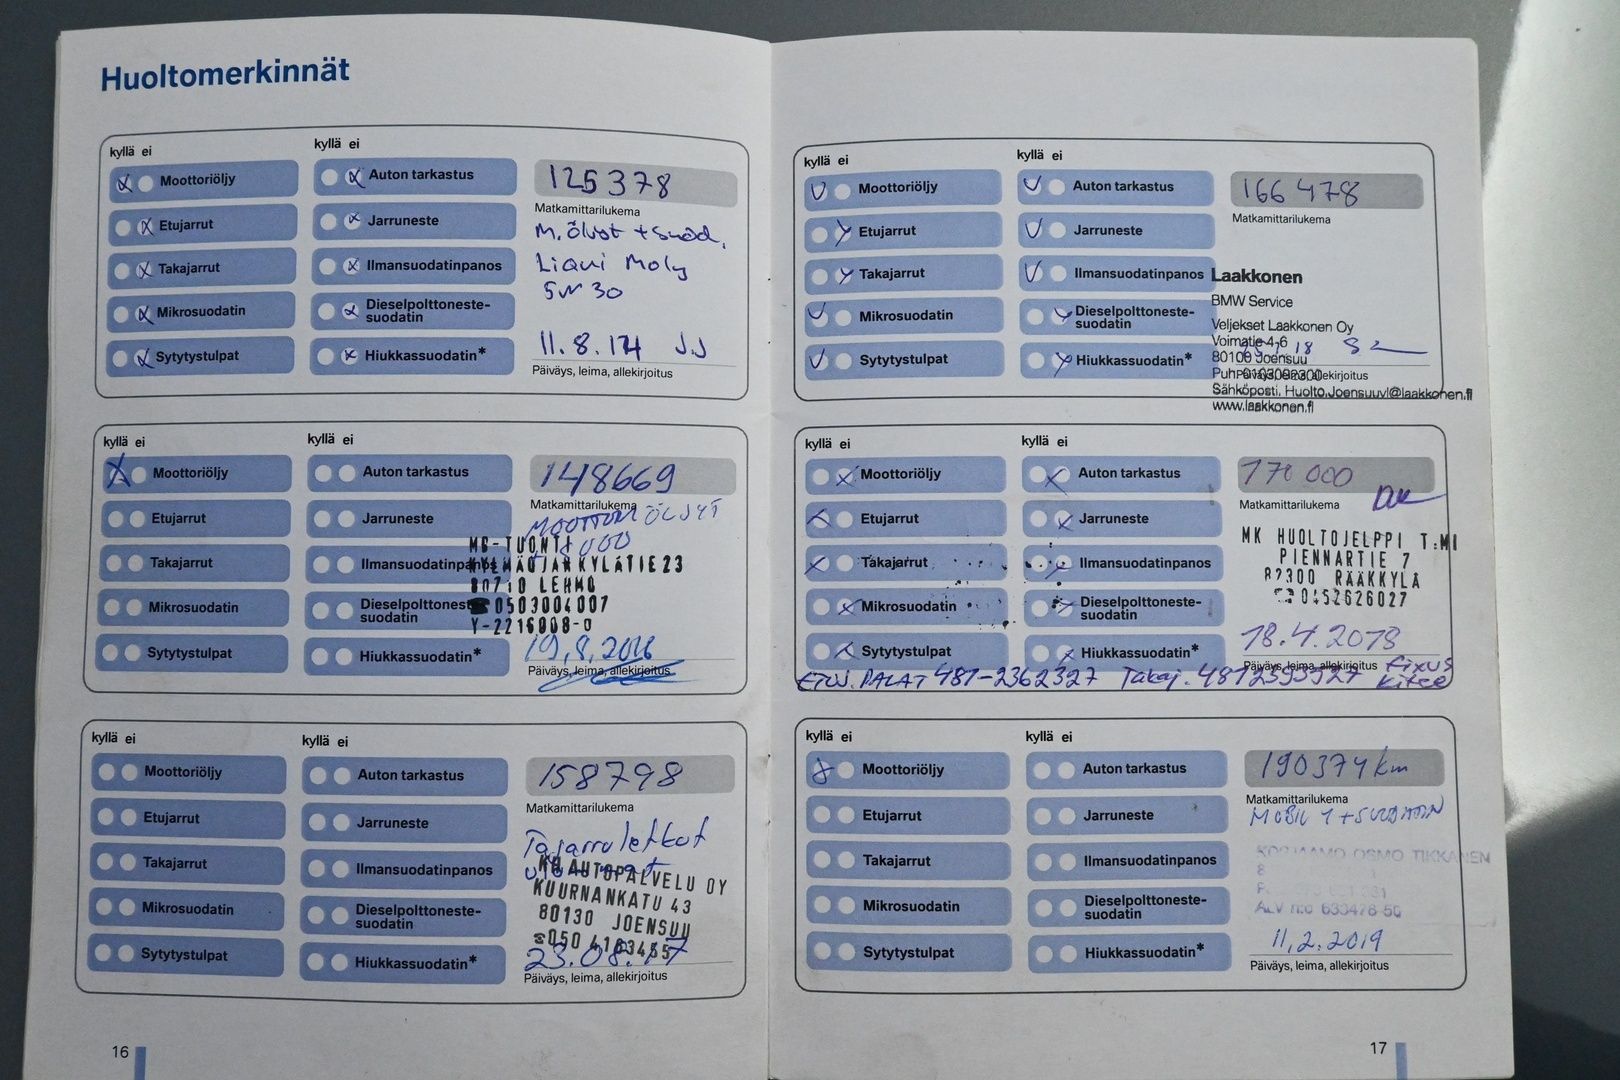 Huoltomerkinnät
kyllä ei
kyllä ei
Moottoriöljy
Auton tarkastus
125378
Etujarrut
Jarruneste
Matkamittarilukema
M. öljyt + suod.
Takajarrut
Ilmansuodatinpanos
Liqui Moly
5W30
Mikrosuodatin
Dieselpolttoneste-
suodatin
Sytytystulpat
Hiukkassuodatin*
11.8.14 J.J
Päiväys, leima, allekirjoitus
kyllä ei
kyllä ei
Moottoriöljy
Auton tarkastus
148669
Matkamittarilukema
Etujarrut
Jarruneste
ÖLJYT
MB-TUONTI
Takajarrut
Ilmansuodatinpanos
KYLMÄOJANKYLÄTIE 23
80710 LEHMO
Mikrosuodatin
Dieselpolttoneste-
suodatin
☎0503004007
Y-2216008-0
Sytytystulpat
Hiukkassuodatin*
19.8.2016
Päiväys, leima, allekirjoitus
kyllä ei
kyllä ei
Moottoriöljy
Auton tarkastus
158798
Matkamittarilukema
Etujarrut
Jarruneste
Takajarrut
Ilmansuodatinpanos
AUTOPALVELU OY
KUURNANKATU 43
Mikrosuodatin
Dieselpolttoneste-
suodatin
80130 JOENSUU
☎050 4183455
Sytytystulpat
Hiukkassuodatin*
23.08.17
Päiväys, leima, allekirjoitus
16
kyllä ei
kyllä ei
Moottoriöljy
Auton tarkastus
166478
Etujarrut
Jarruneste
Matkamittarilukema
Takajarrut
Ilmansuodatinpanos
Laakkonen
BMW Service
Mikrosuodatin
Dieselpolttoneste-
suodatin
Veljekset Laakkonen Oy
Voimatie 4-6
Sytytystulpat
Hiukkassuodatin*
80100 Joensuu
Puh. 0103092300
Päiväys, leima, allekirjoitus
Sähköposti. Huolto.Joensuuvl@laakkonen.fi
www.laakkonen.fi
kyllä ei
kyllä ei
Moottoriöljy
Auton tarkastus
170 000
Matkamittarilukema
Etujarrut
Jarruneste
MK HUOLTOJELPPI T:MI
PIENNARTIE 7
Takajarrut
Ilmansuodatinpanos
82300 RÄÄKKYLÄ
☎0452626027
Mikrosuodatin
Dieselpolttoneste-
suodatin
18.4.2018
Sytytystulpat
Hiukkassuodatin*
Päiväys, leima, allekirjoitus
fixus
kitee
ETUJ. PALAT 481-2362327 Takaj.
kyllä ei
kyllä ei
Moottoriöljy
Auton tarkastus
190374 km
Matkamittarilukema
Etujarrut
Jarruneste
MOBIL 1 + SUODATIN
Takajarrut
Ilmansuodatinpanos
KORJAAMO OSMO TIKKANEN
Mikrosuodatin
Dieselpolttoneste-
suodatin
ALV n:o 633478-50
Sytytystulpat
Hiukkassuodatin*
11.2.2019
Päiväys, leima, allekirjoitus
17